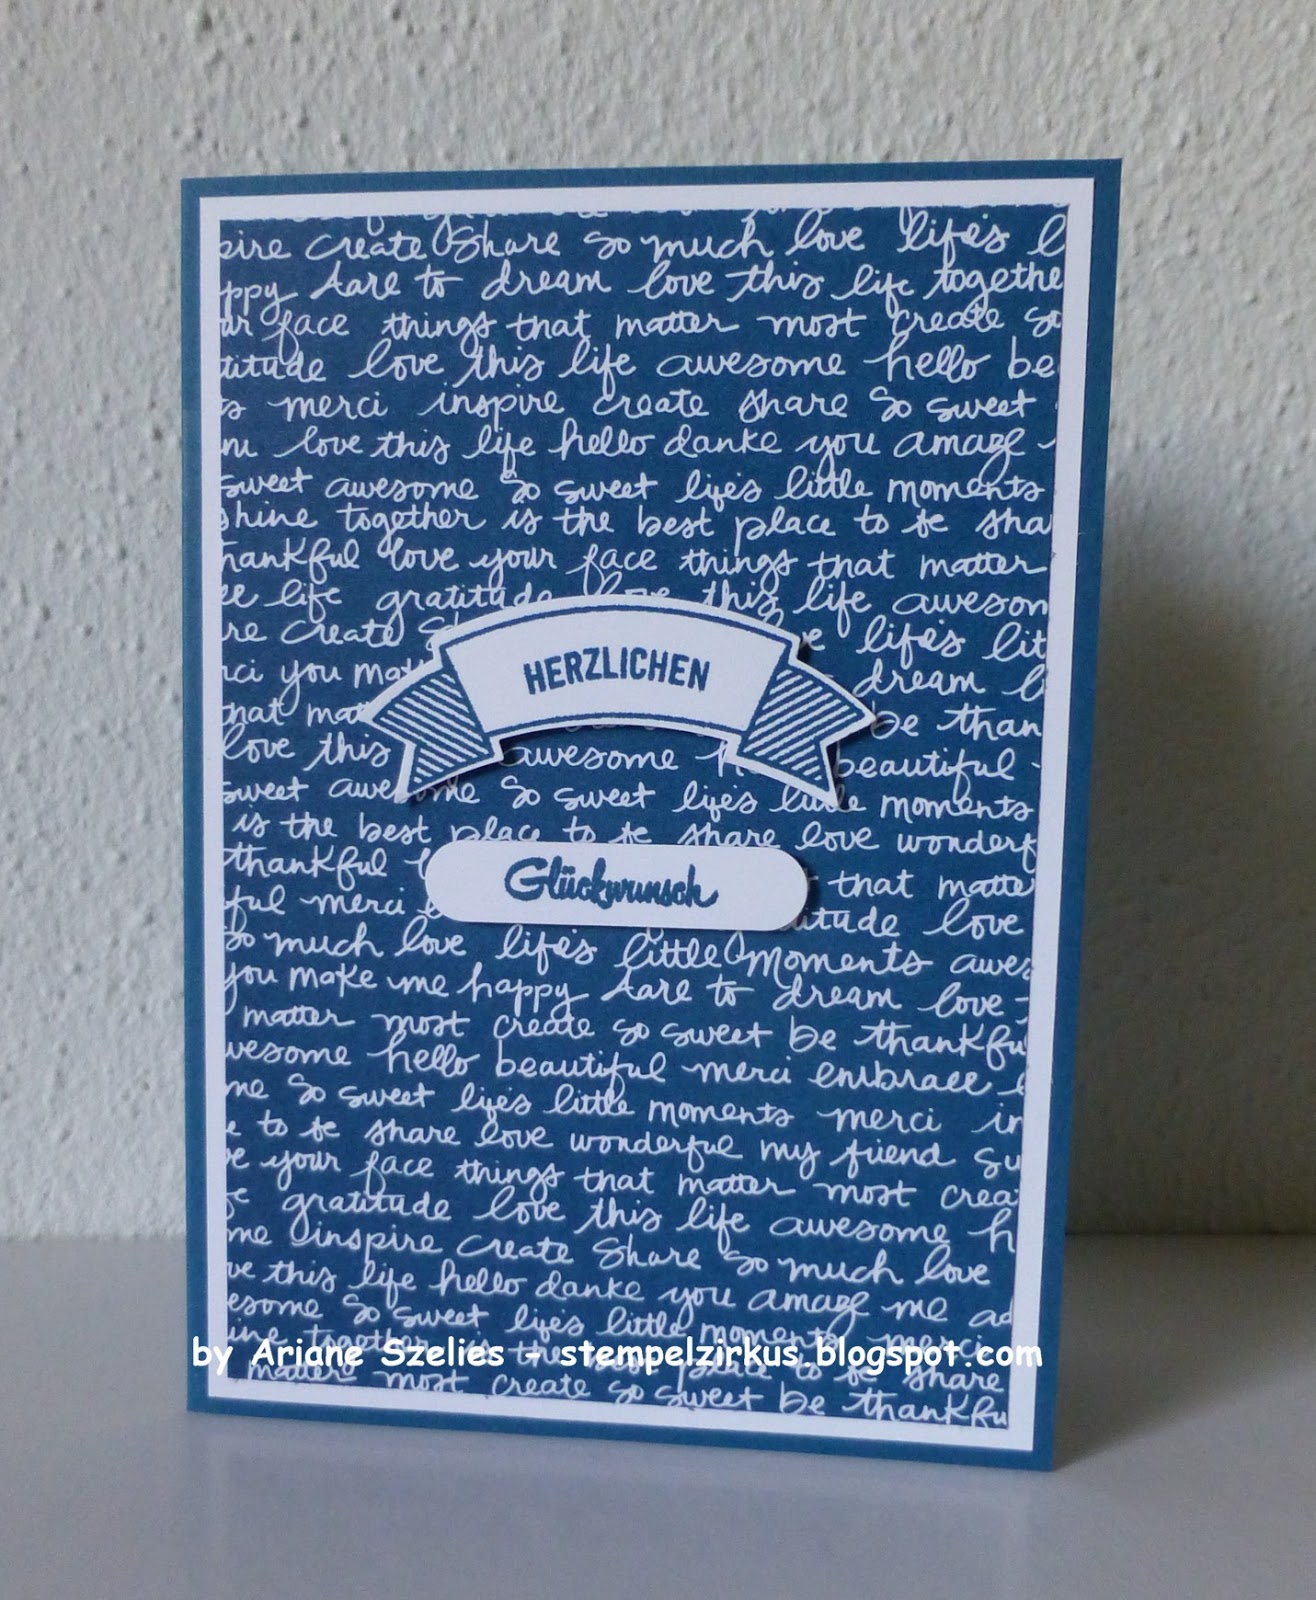 spire create Share so much love life's l
ppy dare to dream love this life togethe
ur face things that matter most create so
titude love this life awesome hello be
s merci inspire create share so sweet
nu love this life hello danke you amaze
sweet awesome so sweet life's little moments
shine together is the best place to be sha
hankful love your face things that matter
ee life gratitude love this life awesom
re create S life's lit
rci you ma dream l
HERZLICHEN
that mat be than
love this awesome beautiful
sweet awesome so sweet life's little moments
is the best place to be share love wonderf
thankful that matte
Glückwunsch
ful merci titude love
so much love life's little moments awes
you make me happy dare to dream love
matter most create so sweet be thankfu
wesome hello beautiful merci embrace
me so sweet life's little moments merci in
e to be share love wonderful my friend su
ve your face things that matter most crea
gratitude love this life awesome h
me inspire create Share so much love
ve this life hello danke you amaze me ad
esome so sweet life's little moments merci
ine together is the best place to be share
by Ariane Szelies - stempelzirkus.blogspot.com
matter most create so sweet be thankfu